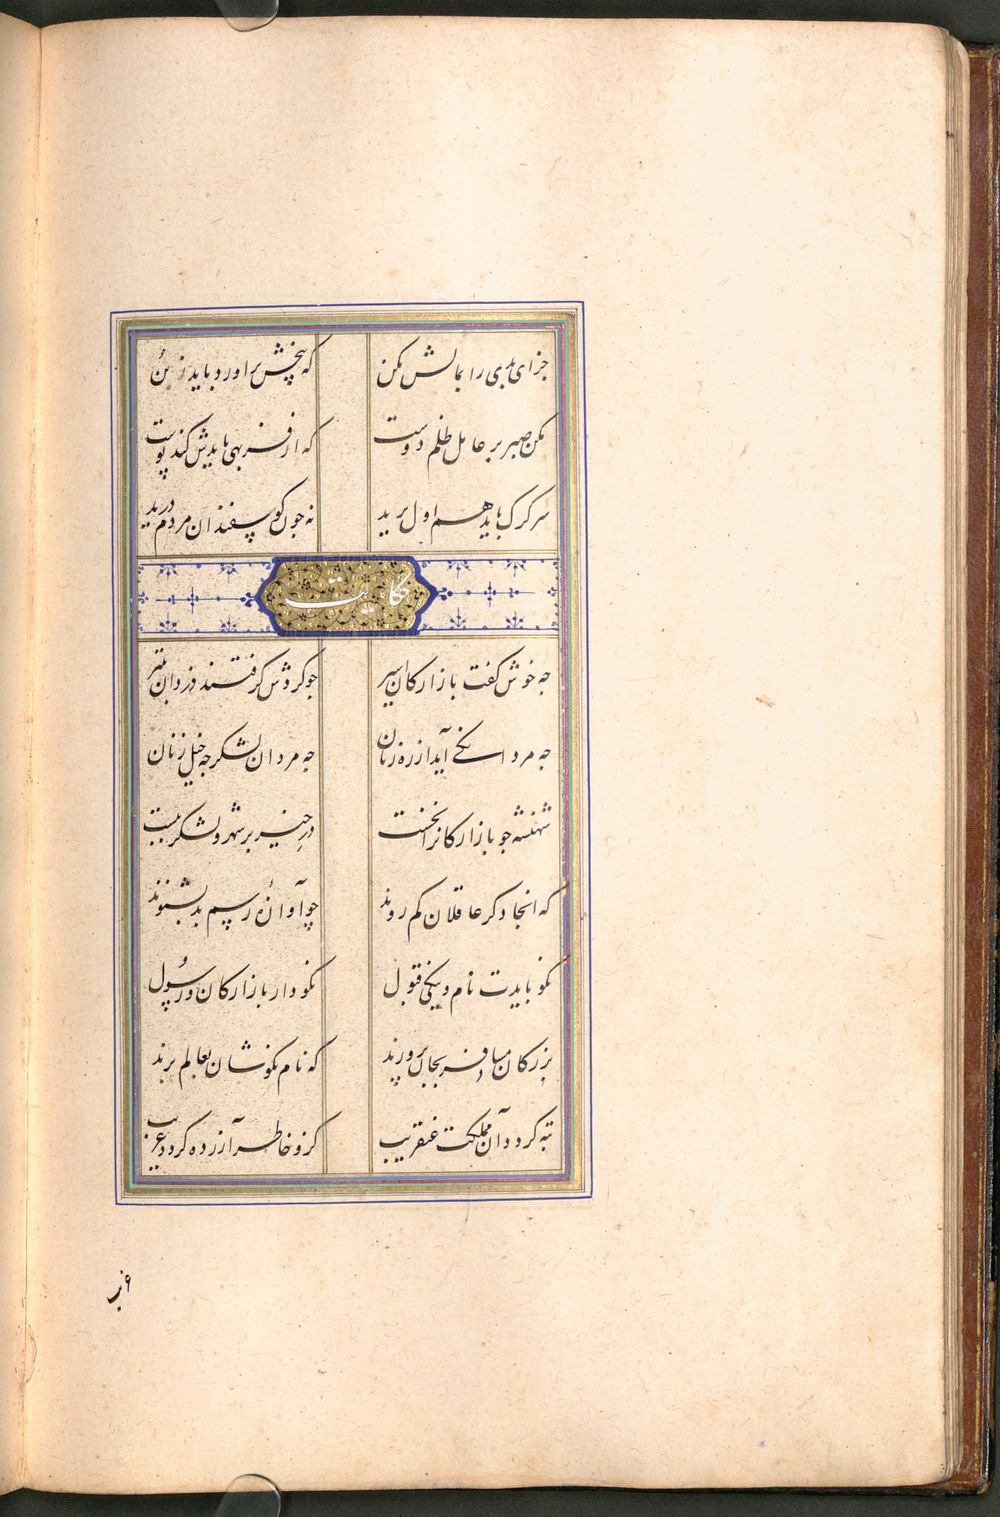 جزای بدی را بمالش مکن که بیخش براورد باید ز بن
مکن صبر بر عامل ظلم دوست که از فربهی بایدش کند پوست
سر کرک باید هم اول برید نه جون کوسفندان مردم درید
حکایت
جه خوش کفت بازارکان اسیر جو کردش کرفتند دزدان بتیر
جه مردانکی آید از رهزنان جه مردان لشکر جه خیل زنان
شهنشه جو بازارکانرا بخست در خیر بر شهر و لشکر ببست
که انجا دکر عاقلان کم روند چو آوازهٔ رسم بد بشنوند
نکو بایدت نام و نیکی قبول نکو دار بازارکان و رسول
بزرکان مسافر بجان پرورند که نام نکوشان بعالم برند
تبه کردد آن مملکت عنقریب کزو خاطر آزرده کردد غریب